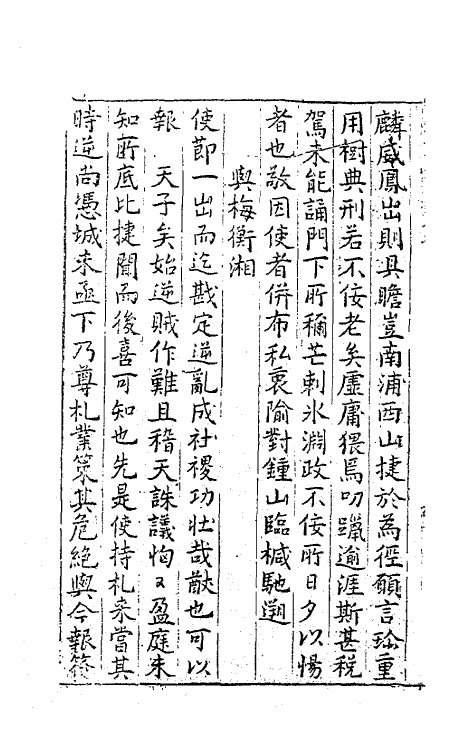 麟威鳳出則具瞻豈南浦西山捷於為徑願言珍重
用樹典刑若不佞老矣虛庸猥焉叨躐逾涯斯甚稅
駕未能誦門下所稱芒刺氷淵政不佞所日夕以惕
者也敬因使者併布私衷隃對鍾山臨椷馳遡
與梅衡湘
使節一出而迄戡定逆亂成社稷功壯哉猷也可以
報　天子矣始逆賊作難且稽天誅議恟々盈庭未
知所底比捷聞而後喜可知也先是使持札來當其
時逆尚憑城未亟下乃尊札業策其危絶與今報符